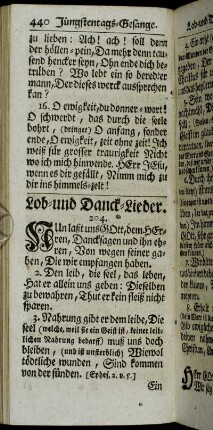 440 Jüngstentags-Gesänge.
zu lieben: Ach! ach! soll dann
der höllen-pein, Da mehr dann tau-
send hencker seyn, Ohn ende dich be-
trüben? Wo lebt ein so beredter
mann, Der dieses werck aussprechen
kan?
16. O ewigkeit, du donner-wort!
O schwerdt, das durch die seele
bohrt, (dringet) O anfang, sonder
ende, O ewigkeit, zeit ohne zeit! Ich
weiß für grosser traurigkeit Nicht
wo ich mich hinwende. HErr JEsu,
wenn es dir gefällt, Nimm mich zu
dir ins himmels-zelt!
Lob- und Danck-Lieder.
204.
NUn laßt uns GOtt, dem HEr-
ren, Dancksagen und ihn eh-
ren, Von wegen seiner ga-
ben, Die wir empfangen haben.
2. Den leib, die seel, das leben,
Hat er allein uns geben: Dieselben
zu bewahren, Thut er kein fleiß nicht
sparen.
3. Nahrung gibt er dem leibe, Die
seel (welche, weil sie ein Geist ist, keiner leib-
lichen Nahrung bedarf) muß uns doch
bleiben, (und ist unsterblich) Wiewol
tödtliche wunden, Sind kommen
von der sünden. [Ephes. 2. v. 5.]
Ein